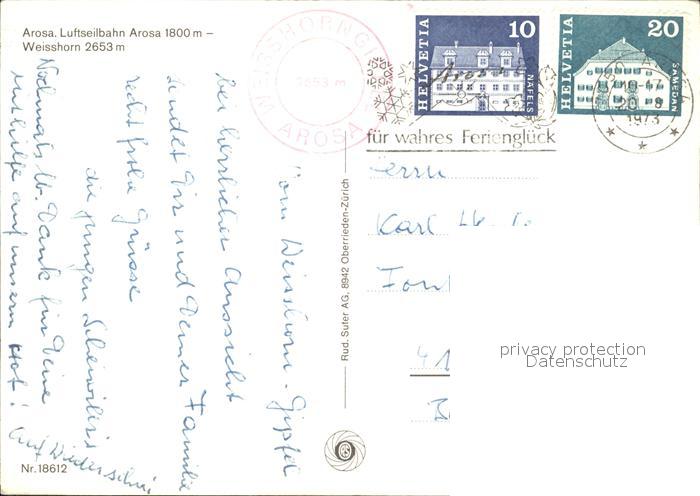 Arosa. Luftseilbahn Arosa 1800 m –
Weisshorn 2653 m
WEISSHORNGIPFEL
2653 m
AROSA
HELVETIA
10
NÄFELS
HELVETIA
20
SAMEDAN
Arosa
für wahres Ferienglück
1973
Vom Weisshorn-Gipfel
bei herrlicher Aussicht
sendet Dir und Deiner Familie
recht frohe Grüsse
die jungen
Nochmals lb. Dank für Deine
Mithilfe auf unserem Hof!
Auf Wiedersehn
Herrn
Karl
41
Rud. Suter AG, 8942 Oberrieden-Zürich
Nr. 18612
privacy protection
Datenschutz